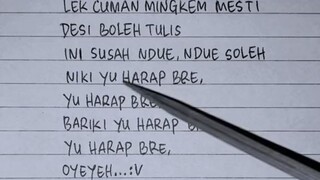 LEK CUMAN MINGKEM MESTI
DESI BOLEH TULIS
INI SUSAH NDUE, NDUE SOLEH
NIKI YU HARAP BRE,
YU HARAP BRE,
BARIKI YU HARAP
YU HARAP BRE,
OYEYEH...:V